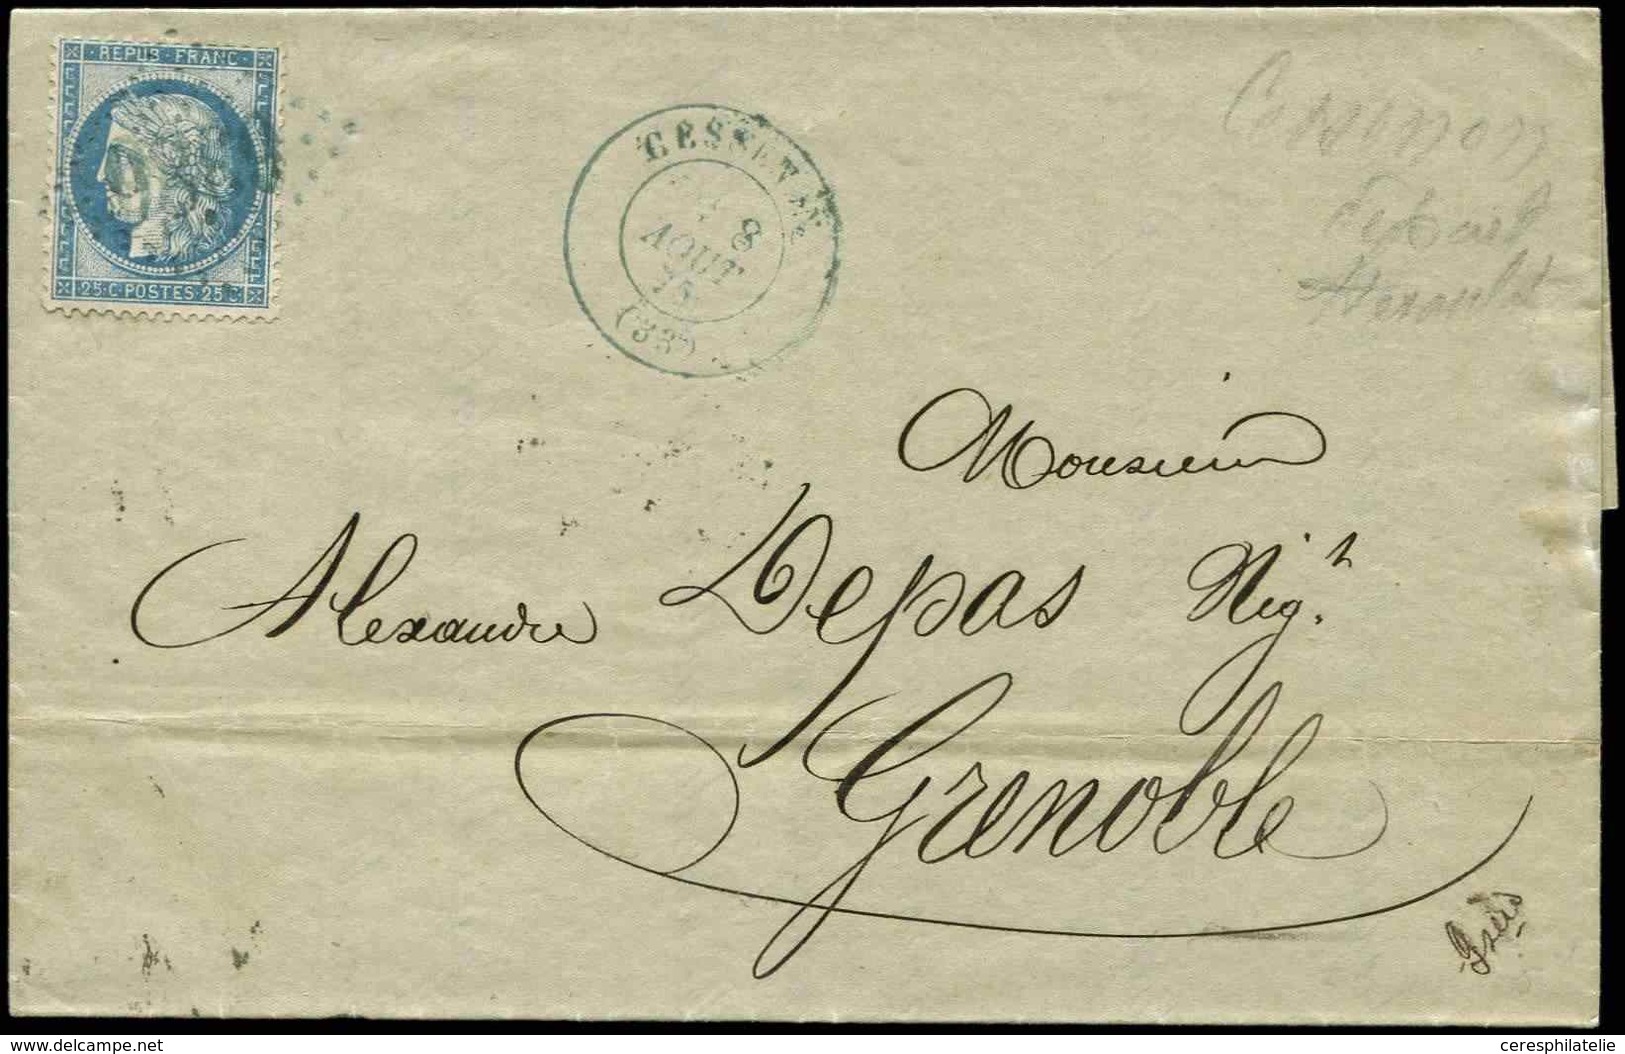 REPUB · FRANC
25 · C · POSTES · 25 C
CESSENON
8
AOUT
75
(33)
Cessenon
départ
Herault
Monsieur
Alexandre Depas Nig.t
Grenoble
Isère
© delcampe.net
ceresphilatelie